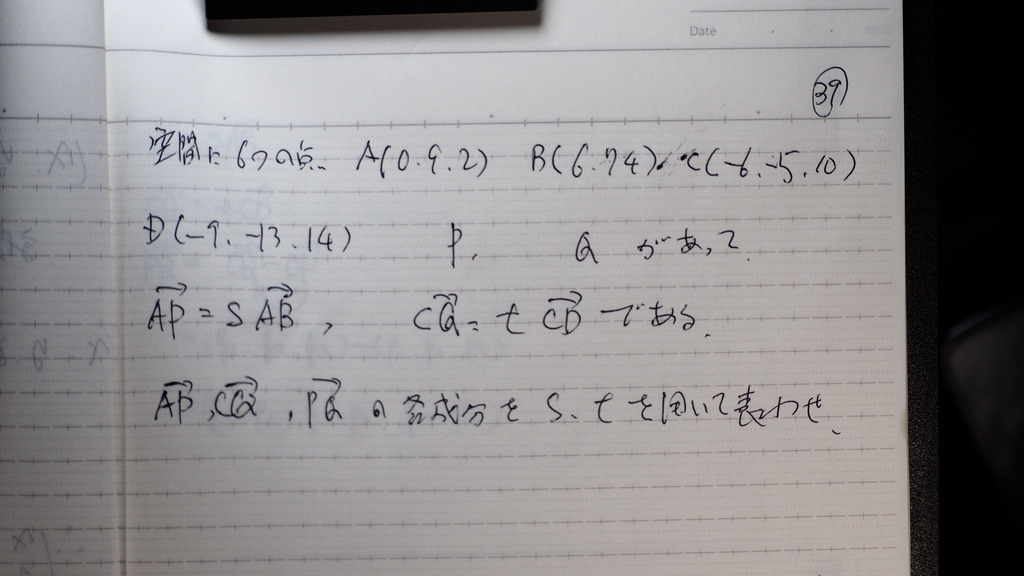 Date
39
空間に6つの点、A(0.9.2) B(6.7.4)、C(-6.-5.10)
D(-9.-13.14) P. Q があって
AP=SAB, CQ=tCDである.
AP,CQ,PQの各成分をS、tを用いて表わせ、